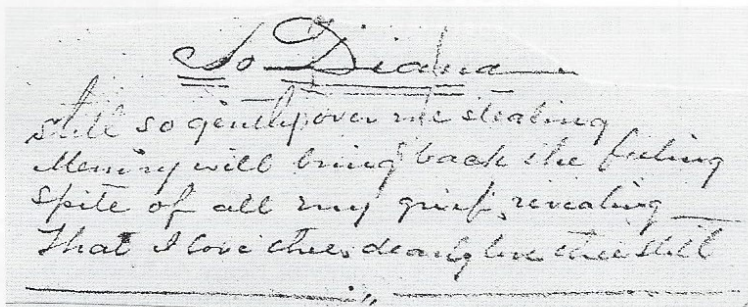 To Diana
Still so gently over me stealing
Memory will bring back the feeling
Spite of all my grief, revealing
That I love thee, dearly love thee still